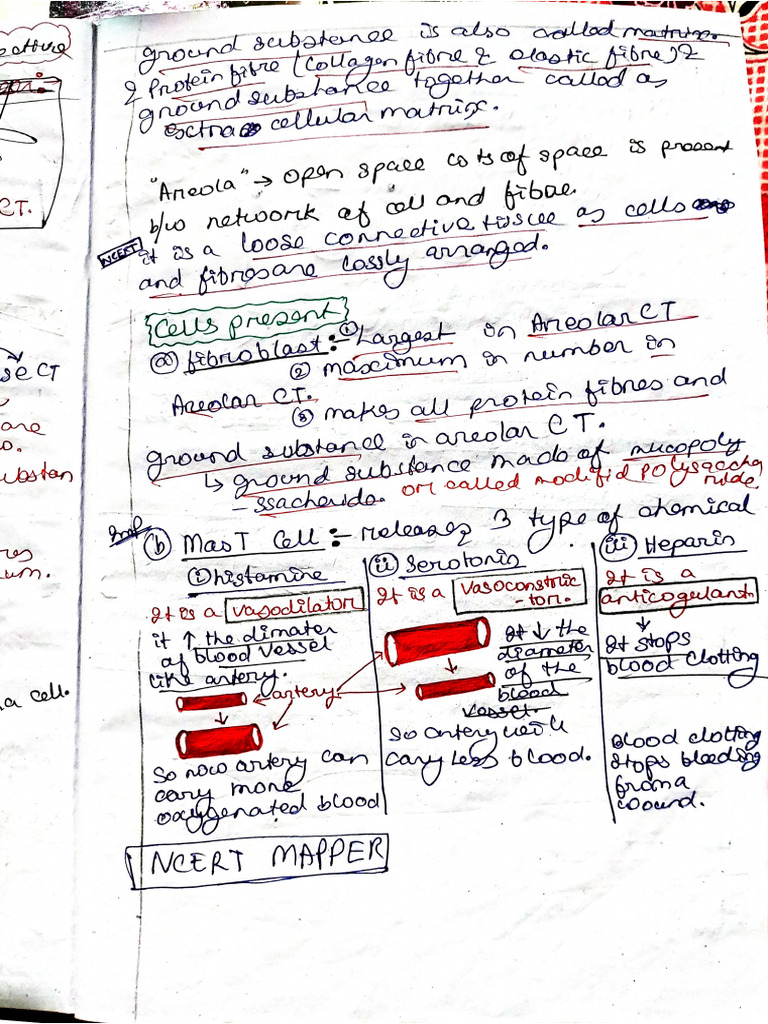 ective
CT.
se CT
are
o.
ubstan
res
um.
a cell.
ground substance is also called matrix.
& Protein fibre (Collagen fibre & elastic fibre) &
ground substance together called as
extra cellular matrix.
"Areola" → open space lots of space is present
b/w network of cell and fibre.
NCERT it is a loose connective tissue as cells
and fibres are lossly arranged.
Cells present
(a) fibroblast :- (1) Largest in Areolar CT
(2) maximum in number in
Areolar CT.
(3) makes all protein fibres and
ground substance in areolar CT.
↳ ground substance made of mucopoly
-ssacheride. or called modifid polysaccha
ride
Imp (b) Mast Cell :- releases 3 type of chemical
(i) histamine
It is a vasodilator
it ↑ the dimater
of blood vessel
like artery.
← artery →
↓
So now artery can
cary more
oxygenated blood
(ii) Serotonin
It is a Vasoconstric
-tor.
It ↓ the
diameter
of the
blood
vessel.
↓
So artery will
cary less blood.
(iii) Heparin
It is a
anticogulant
↓
It stops
blood clotting
Blood clotting
stops bleeding
from a
wound.
NCERT MAPPER